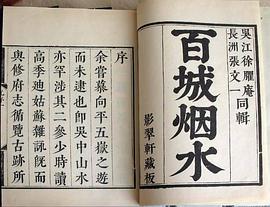 吳江徐臞庵同輯
長洲張文一
百城烟水
影翠軒藏板
序
余嘗慕向平五嶽之遊
而未逮也卽吳中山水
亦罕涉其二參少時讀
高季迪姑蘇雜詠旣而
與修府志循覽古跡所